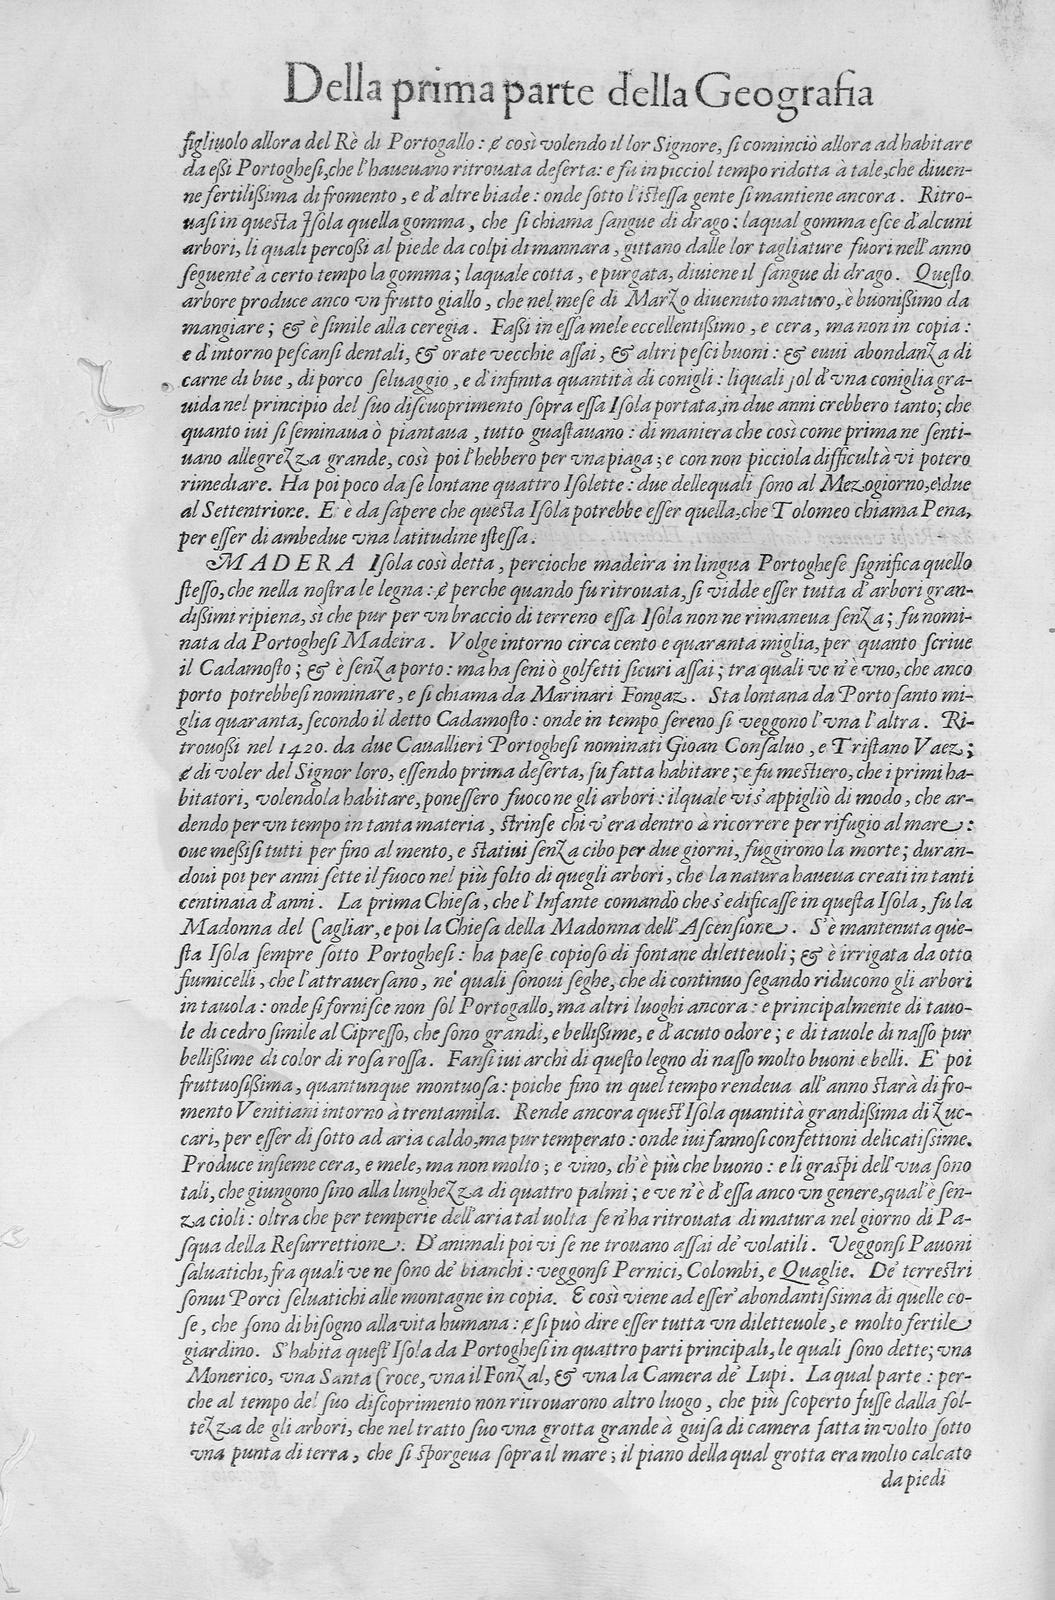 Della prima parte della Geografia
figliuolo allora del Rè di Portogallo: & così volendo il lor Signore, si cominciò allora ad habitare
da essi Portoghesi, che l'haueuano ritrouata deserta: e fu in picciol tempo ridotta à tale, che diuen-
ne fertilissima di fromento, e d'altre biade: onde sotto l'istessa gente si mantiene ancora. Ritro-
uasi in questa Isola quella gomma, che si chiama sangue di drago: laqual gomma esce d'alcuni
arbori, li quali percossi al piede da colpi di mannara, gittano dalle lor tagliature fuori nell'anno
seguente à certo tempo la gomma; laquale cotta, e purgata, diuiene il sangue di drago. Questo
arbore produce anco vn frutto giallo, che nel mese di Marzo diuenuto maturo, è buonissimo da
mangiare; & è simile alla ceregia. Fassi in essa mele eccellentissimo, e cera, ma non in copia:
e d'intorno pescansi dentali, & orate vecchie assai, & altri pesci buoni: & euui abondanza di
carne di bue, di porco seluaggio, e d'infinita quantità di conigli: liquali sol d'vna coniglia gra-
uida nel principio del suo discuoprimento sopra essa Isola portata, in due anni crebbero tanto; che
quanto iui si seminaua ò piantaua, tutto guastauano: di maniera che così come prima ne senti-
uano allegrezza grande, così poi l'hebbero per vna piaga; e con non picciola difficultà vi potero
rimediare. Ha poi poco da se lontane quattro Isolette: due delle quali sono al Mezogiorno, e due
al Settentrione. E è da sapere che questa Isola potrebbe esser quella, che Tolomeo chiama Pena,
per esser di ambedue vna latitudine istessa.
MADERA Isola così detta, percioche madeira in lingua Portoghese significa quello
stesso, che nella nostra le legna: & perche quando fu ritrouata, si vidde esser tutta d'arbori gran-
dissimi ripiena, sì che pur per vn braccio di terreno essa Isola non ne rimaneua senza; fu nomi-
nata da Portoghesi Madeira. Volge intorno circa cento e quaranta miglia, per quanto scriue
il Cadamosto; & è senza porto: ma ha seni ò golfetti sicuri assai; tra quali ve n'è vno, che anco
porto potrebbesi nominare, e si chiama da Marinari Fongaz. Sta lontana da Porto santo mi-
glia quaranta, secondo il detto Cadamosto: onde in tempo sereno si veggono l'vna l'altra. Ri-
trouossi nel 1420. da due Cauallieri Portoghesi nominati Gioan Consaluo, e Tristano Vaez;
& di voler del Signor loro, essendo prima deserta, fu fatta habitare; e fu mestiero, che i primi ha-
bitatori, volendola habitare, ponessero fuoco ne gli arbori: ilquale vi s'appigliò di modo, che ar-
dendo per vn tempo in tanta materia, strinse chi v'era dentro à ricorrere per rifugio al mare:
oue messisi tutti per fino al mento, e statiui senza cibo per due giorni, fuggirono la morte; duran-
doui poi per anni sette il fuoco nel più folto di quegli arbori, che la natura haueua creati in tanti
centinaia d'anni. La prima Chiesa, che l'Infante comandò che s'edificasse in questa Isola, fu la
Madonna del Cagliar, e poi la Chiesa della Madonna dell'Ascensione. S'è mantenuta que-
sta Isola sempre sotto Portoghesi: ha paese copioso di fontane diletteuoli; & è irrigata da otto
fiumicelli, che l'attrauersano, ne' quali sonoui seghe, che di continuo segando riducono gli arbori
in tauola: onde si fornisce non sol Portogallo, ma altri luoghi ancora: e principalmente di tauo-
le di cedro simile al Cipresso, che sono grandi, e bellissime, e d'acuto odore; e di tauole di nasso pur
bellissime di color di rosa rossa. Fansi iui archi di questo legno di nasso molto buoni e belli. E' poi
fruttuosissima, quantunque montuosa: poiche fino in quel tempo rendeua all'anno starà di fro-
mento Venitiani intorno à trentamila. Rende ancora quest'Isola quantità grandissima di zuc-
cari, per esser di sotto ad aria caldo, ma pur temperato: onde iui fannosi confettioni delicatissime.
Produce insieme cera, e mele, ma non molto; e vino, ch'è più che buono: e li graspi dell'vua sono
tali, che giungono sino alla lunghezza di quattro palmi; e ve n'è d'essa anco vn genere, qual'è sen-
za cioli: oltra che per temperie dell'aria tal uolta se n'ha ritrouata di matura nel giorno di Pa-
squa della Resurrettione. D'animali poi vi se ne trouano assai de' volatili. Veggonsi Pauoni
saluatichi, fra quali ve ne sono de' bianchi: veggonsi Pernici, Colombi, e Quaglie. De' terrestri
sonui Porci seluatichi alle montagne in copia. E così viene ad esser' abondantissima di quelle co-
se, che sono di bisogno alla vita humana: & si può dire esser tutta vn diletteuole, e molto fertile
giardino. S'habita quest'Isola da Portoghesi in quattro parti principali, le quali sono dette; vna
Monerico, vna Santa Croce, vna il Fonzal, & vna la Camera de' Lupi. La qual parte: per-
che al tempo del suo discoprimento non ritrouarono altro luogo, che più scoperto fusse dalla fol-
tezza de gli arbori, che nel tratto suo vna grotta grande à guisa di camera fatta in volto sotto
vna punta di terra, che si sporgeua sopra il mare; il piano della qual grotta era molto calcato
da piedi